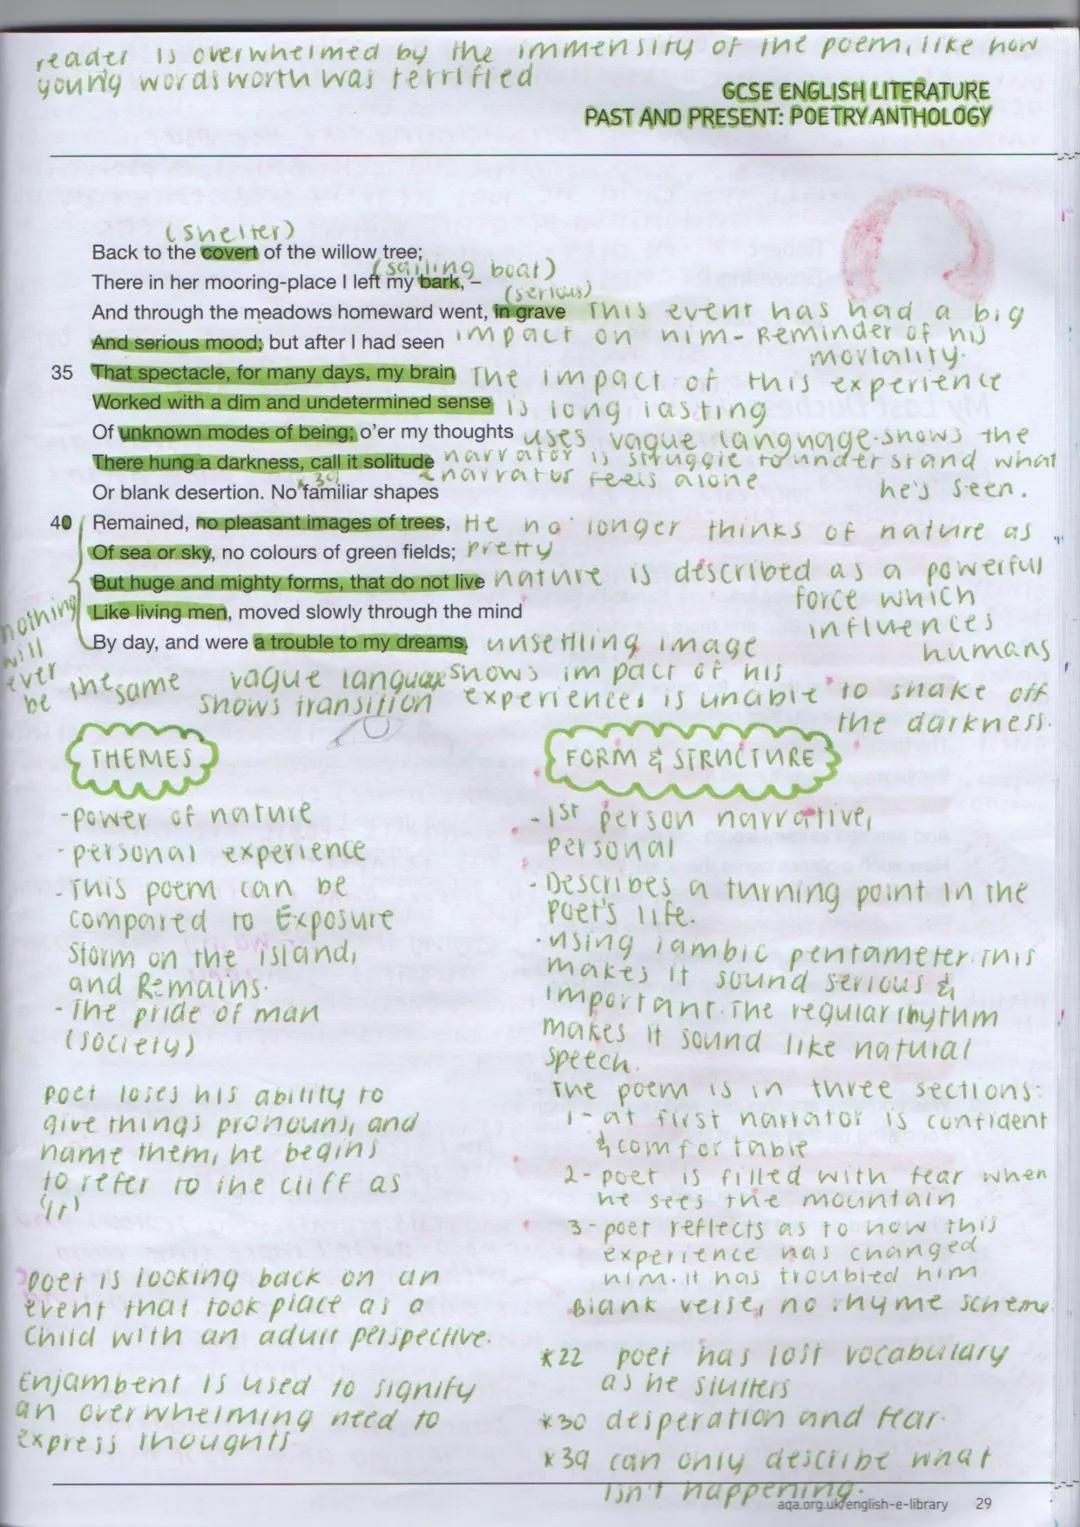 reader is overwhelmed by the immensity of the poem, like how
young wordsworth was terrified
GCSE ENGLISH LITERATURE
PAST AND PRESENT: POETRY ANTHOLOGY
(shelter)
Back to the covert of the willow tree;
(sailing boat)
There in her mooring-place I left my bark, –
(serious)
And through the meadows homeward went, in grave This event has had a big
And serious mood; but after I had seen impact on him - Reminder of his
mortality.
35 That spectacle, for many days, my brain The impact of this experience
Worked with a dim and undetermined sense is long lasting
Of unknown modes of being; o'er my thoughts uses vague language. shows the
There hung a darkness, call it solitude narrator is struggle to understand what
he's seen.
& narrator feels alone
*39
Or blank desertion. No familiar shapes
40 Remained, no pleasant images of trees, He no longer thinks of nature as
Of sea or sky, no colours of green fields; pretty
But huge and mighty forms, that do not live nature is described as a powerful
force which
influences
humans
Like living men, moved slowly through the mind
By day, and were a trouble to my dreams. unsettling image
nothing
will
ever
be the same
vague language
shows transition
shows impact of his
experiences is unable to shake off
the darkness.
THEMES
- power of nature
- personal experience
- This poem can be
compared to Exposure
Storm on the island,
and Remains.
- The pride of man
(society)
poet loses his ability to
give things pronouns, and
name them, he begins
to refer to the cliff as
'it'
poet is looking back on an
event that took place as a
child with an adult perspective.
Enjambent is used to signify
an overwhelming need to
express thoughts
FORM & STRUCTURE
- 1st person narrative,
personal
- Describes a turning point in the
poet's life.
- using iambic pentameter. This
makes it sound serious &
important. The regular rhythm
makes it sound like natural
speech.
The poem is in three sections:
1 - at first narrator is confident
& comfortable
2 - poet is filled with fear when
he sees the mountain
3 - poet reflects as to how this
experience has changed
him. it has troubled him
Blank verse, no rhyme scheme
*22 poet has lost vocabulary
as he stutters
*30 desperation and fear.
*39 can only describe what
isn't happening.
aqa.org.uk/english-e-library 29